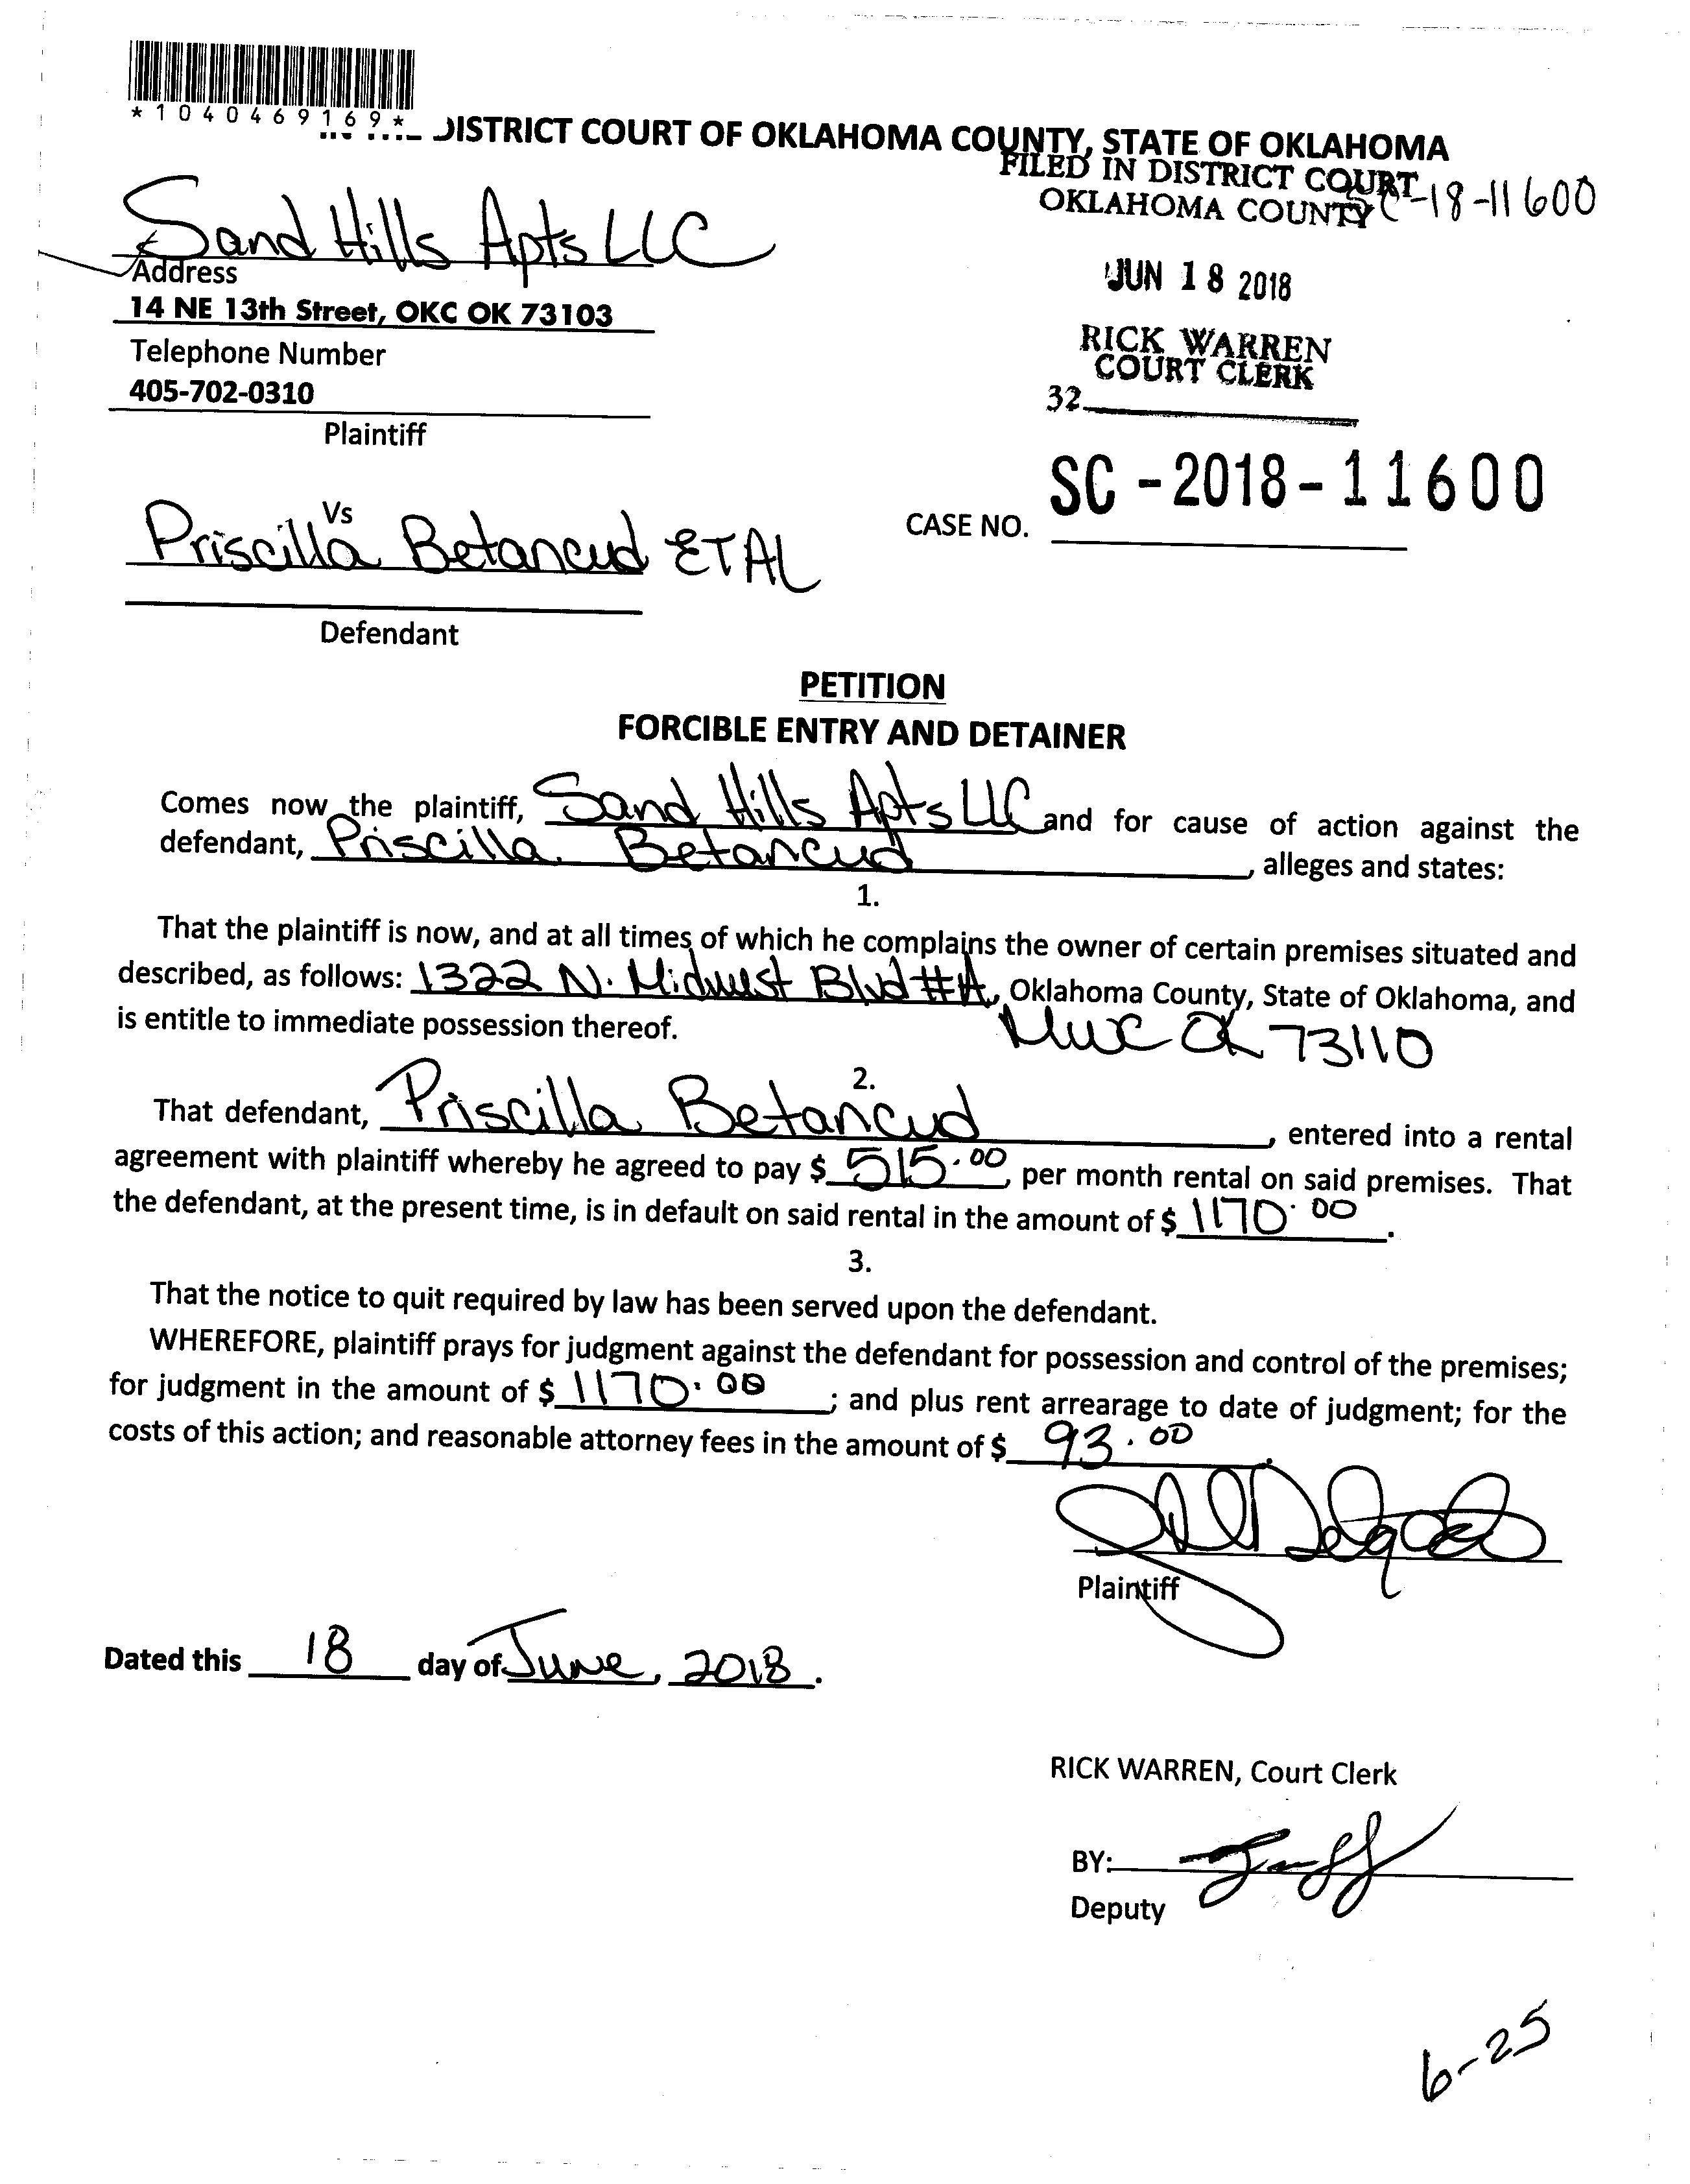 *1040469169*
DISTRICT COURT OF OKLAHOMA COUNTY, STATE OF OKLAHOMA
FILED IN DISTRICT COURT
OKLAHOMA COUNTY
SC-18-11600
Sand Hills Apts LLC
Address
14 NE 13th Street, OKC OK 73103
Telephone Number
405-702-0310
Plaintiff
JUN 18 2018
RICK WARREN
COURT CLERK
32
Vs
Priscilla Betancud ETAL
Defendant
CASE NO. SC-2018-11600
PETITION
FORCIBLE ENTRY AND DETAINER
Comes now the plaintiff, Sand Hills Apts LLC and for cause of action against the
defendant, Priscilla Betancud, alleges and states:
1.
That the plaintiff is now, and at all times of which he complains the owner of certain premises situated and
described, as follows: 1322 N. Midwest Blvd #A, Oklahoma County, State of Oklahoma, and
is entitle to immediate possession thereof. MWC OK 73110
2.
That defendant, Priscilla Betancud, entered into a rental
agreement with plaintiff whereby he agreed to pay $ 515.00, per month rental on said premises. That
the defendant, at the present time, is in default on said rental in the amount of $ 1170.00.
3.
That the notice to quit required by law has been served upon the defendant.
WHEREFORE, plaintiff prays for judgment against the defendant for possession and control of the premises;
for judgment in the amount of $ 1170.00; and plus rent arrearage to date of judgment; for the
costs of this action; and reasonable attorney fees in the amount of $ 93.00.
Plaintiff
Dated this 18 day of June, 2018.
RICK WARREN, Court Clerk
BY:
Deputy
6-25